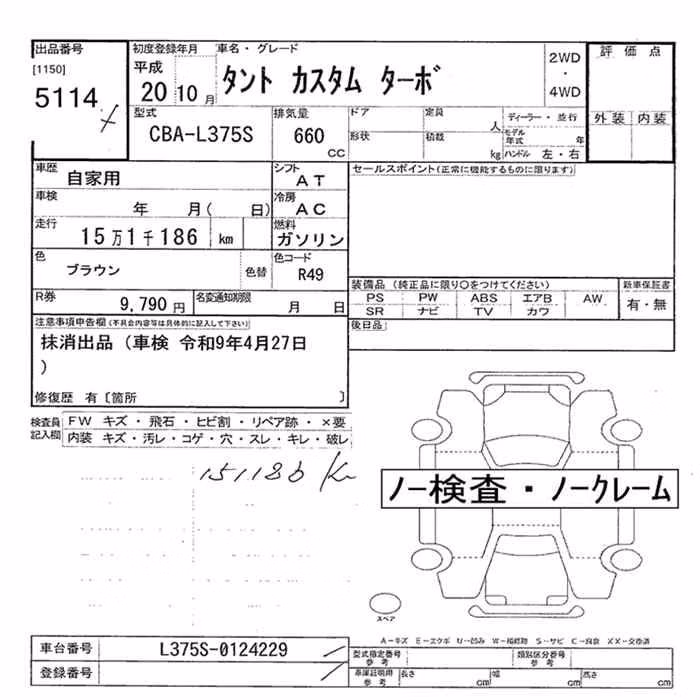 出品番号 初度登録年月 車名・グレード 評価点
[1150] 平成 2WD
5114 20 10月 タント カスタム ターボ ・
4WD
型式 排気量 ドア 定員 人 ディーラー・並行 外装 内装
CBA-L375S 660 CC 形状 積載 kg モデル年式 年
ハンドル 左・右
車歴 自家用 シフト AT セールスポイント(正常に機能するものに限ります)
車検 年 月( 日) 冷房 AC
走行 15万1千186 km 燃料 ガソリン
色 ブラウン 色替 色コード R49
装備品 (純正品に限り○をつけてください) 新車保証書
R券 9,790円 名変通知期限 月 日 PS PW ABS エアB AW 有・無
SR ナビ TV カワ
注意事項申告欄(不具合内容等は具体的に記入して下さい) 後日品
抹消出品(車検 令和9年4月27日
)
修復歴 有〔箇所 〕
検査員記入欄 FW キズ・飛石・ヒビ割・リペア跡・×要
内装 キズ・汚レ・コゲ・穴・スレ・キレ・破レ
151186 Km
ノー検査・ノークレーム
スペア
A-キズ E-エクボ U-凹み W-補修跡 S-サビ C-腐食 XX-交換済
車台番号 L375S-0124229 型式指定番号 参考 類別区分番号 参考
登録番号 車庫証明用 参考 長さ cm 幅 cm 高さ cm